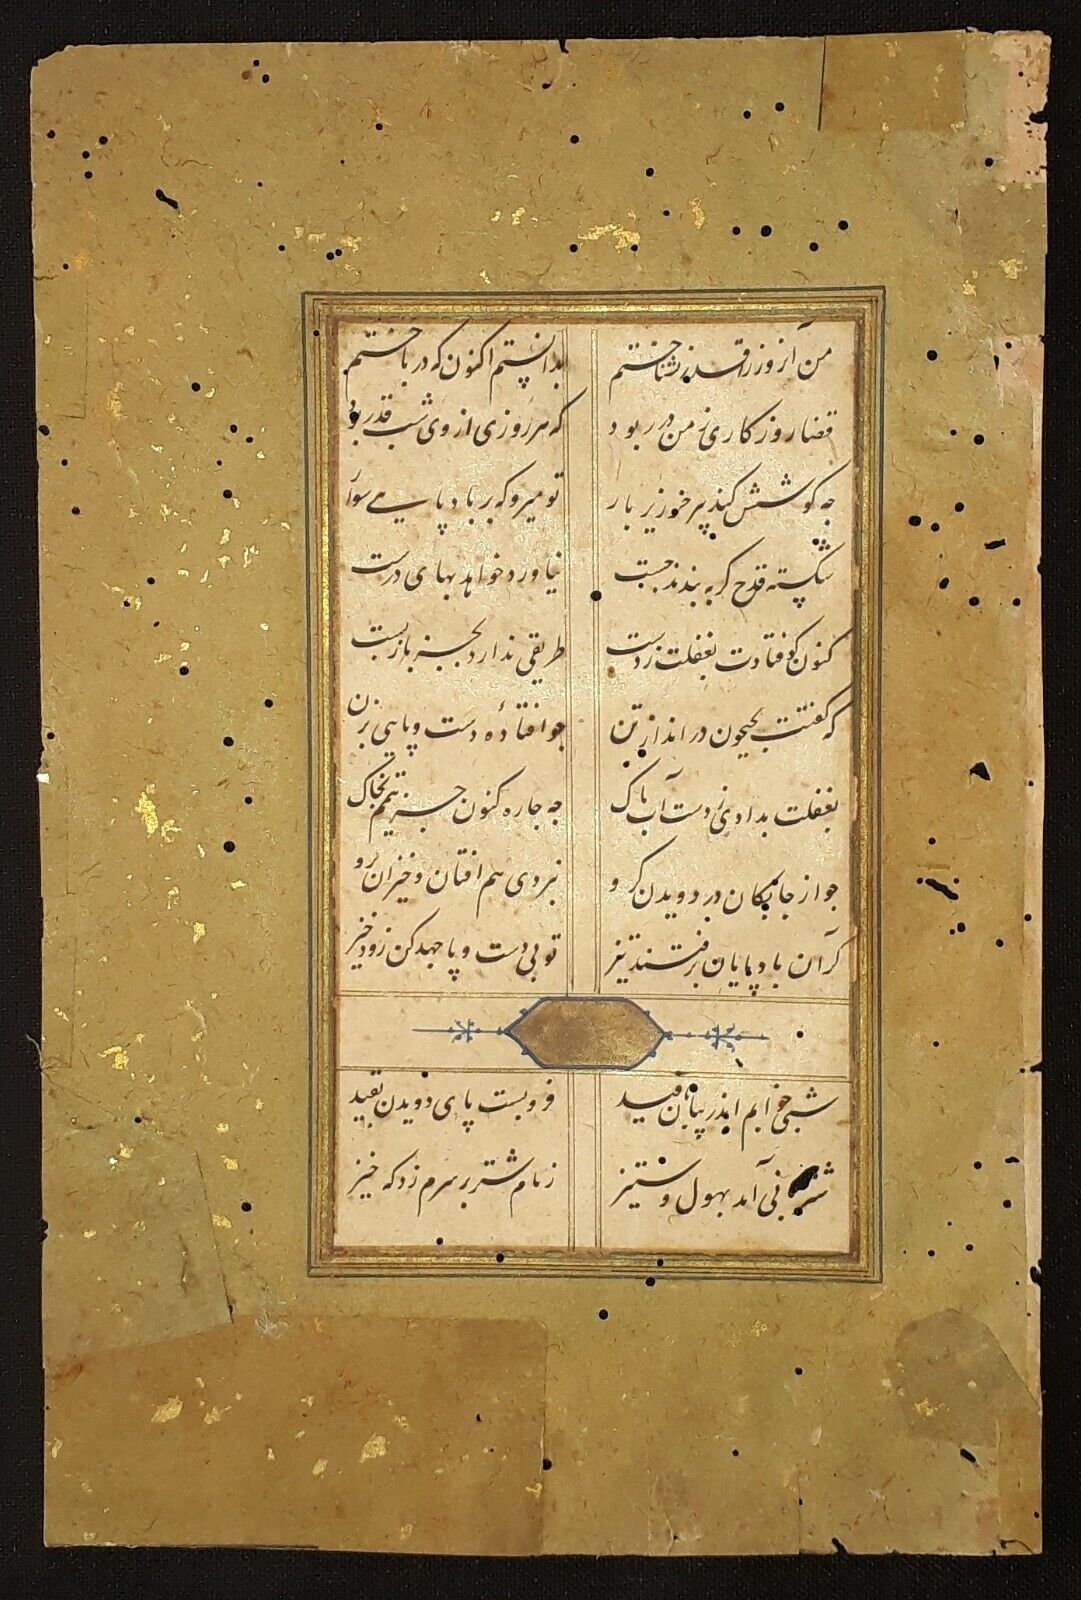 من آنروز را قدر نشناختم بدانستم اکنون که در باختم
قضا روزکاری ز من در ربود که هر روزی از وی شب قدر بود
جه کوشش کند پیر خر زیر بار تو میرو که بر باد پایی سوار
شکسته قدح کر ببندند جست نیاورد خواهد بهای درست
کنون کوفتادت بغفلت ز دست طریقی ندارد بجز باز بست
که کفتت بجیحون در انداز تن جو افتادهٔ دست و پایی بزن
بغفلت بدادی ز دست آب پاک جه جاره کنون جز تیمم بخاک
جو از جابکان در دویدن کرو نبردی هم افتان و خیزان برو
کر آن باد پایان برفتند تیز تو بی دست و پا جهد کن زود خیز
شبی خوابم اندر بیابان فید فرو بست پای دویدن بقید
شتربانی آمد بهول و ستیز زمام شتر بر سرم زد که خیز